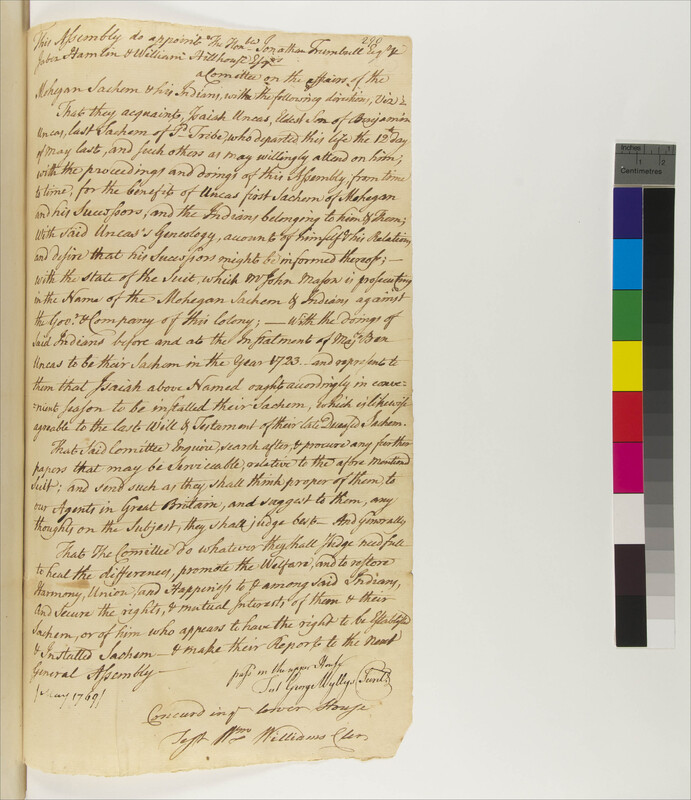 290
This Assembly do appoint The Honbe Jonathan Trumbull Esqr &
Jabez Hamlin & William Hillhouse Esqrs
a Comittee on the affairs of the
Mohegan Sachem & his Indians, with the following direction, Viz:
That they acquaint, Isaiah Uncas, Eldest Son of Benjamin
Uncas, last Sachem of sd Tribe, who departed this life the 12th day
of May last, and such others as may willingly attend on him;
with the proceedings and doings of this Assembly, from time
to time, for the benefit of Uncas first Sachem of Mohegan
and his Successors, and the Indians belonging to him & Them;
with said Uncas's Geneology, account of himself & his Relation,
and desire that his Successors might be informed thereof; —
with the state of the Suit, which Mr John Mason is prosecuting
in the Name of the Mohegan Sachem & Indians against
the Govr & Company of this Colony; — With the doings of
said Indians before and at the Instalment of Majr Ben
Uncas to be their Sachem in the Year 1723 — and represent to
them that Isaiah above Named ought accordingly in conve-
-nient season to be installed their Sachem, which is likewise
agreable to the last Will & Testament of their late Deceased Sachem.
That said Comittee Enquire, search after, & procure any further
papers that may be Serviceable, relative to the afore mentiond
Suit; and send such as they shall think proper of them, to
our Agents in Great Britain, and suggest to them, any
thoughts on the Subject, they shall judge best — And Generally
That The Comittee do whatever they shall judge needfull
to heal the differences, promote the Welfare, and to restore
Harmony, Union, and Happeness to & among said Indians,
and Secure the rights, & mutual Interests of them & their
Sachem, or of him who appears to have the right to be Establisht
& Installed Sachem — & make their Report to the next
General Assembly —
past in the upper House
Test George Wyllys Secrety
[May 1769]
Concurd in ye lower House
Test Wm Williams Cler